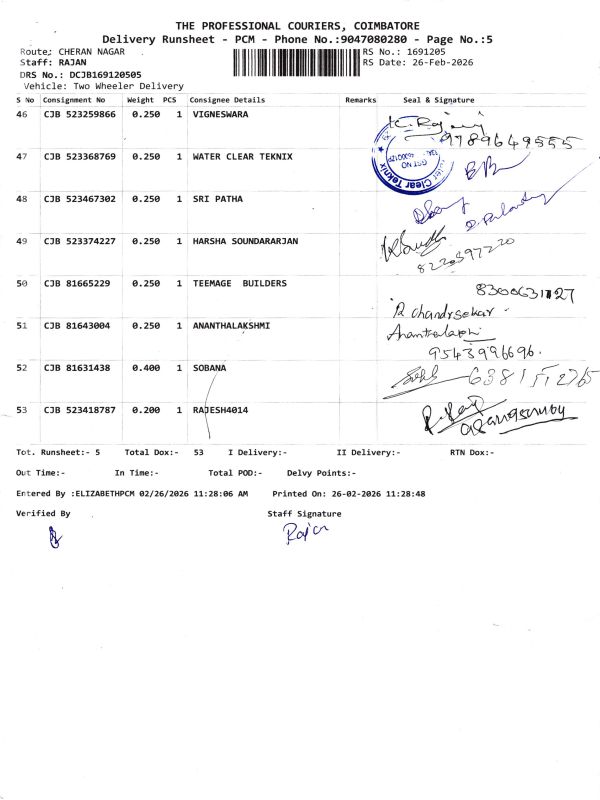 THE PROFESSIONAL COURIERS, COIMBATORE
Delivery Runsheet - PCM - Phone No.:9047080280 - Page No.:5
Route: CHERAN NAGAR RS No.: 1691205
Staff: RAJAN RS Date: 26-Feb-2026
DRS No.: DCJB169120505
Vehicle: Two Wheeler Delivery
S No Consignment No Weight PCS Consignee Details Remarks Seal & Signature
46 CJB 523259866 0.250 1 VIGNESWARA
9789649555
47 CJB 523368769 0.250 1 WATER CLEAR TEKNIX
Water Clear Teknix
48 CJB 523467302 0.250 1 SRI PATHA
49 CJB 523374227 0.250 1 HARSHA SOUNDARARJAN
50 CJB 81665229 0.250 1 TEEMAGE BUILDERS
8300631727
R chandrsekar
51 CJB 81643004 0.250 1 ANANTHALAKSHMI
Ananthalakshmi
9543996696.
52 CJB 81631438 0.400 1 SOBANA
53 CJB 523418787 0.200 1 RAJESH4014
Tot. Runsheet:- 5 Total Dox:- 53 I Delivery:- II Delivery:- RTN Dox:-
Out Time:- In Time:- Total POD:- Delvy Points:-
Entered By :ELIZABETHPCM 02/26/2026 11:28:06 AM Printed On: 26-02-2026 11:28:48
Verified By Staff Signature
Rajan